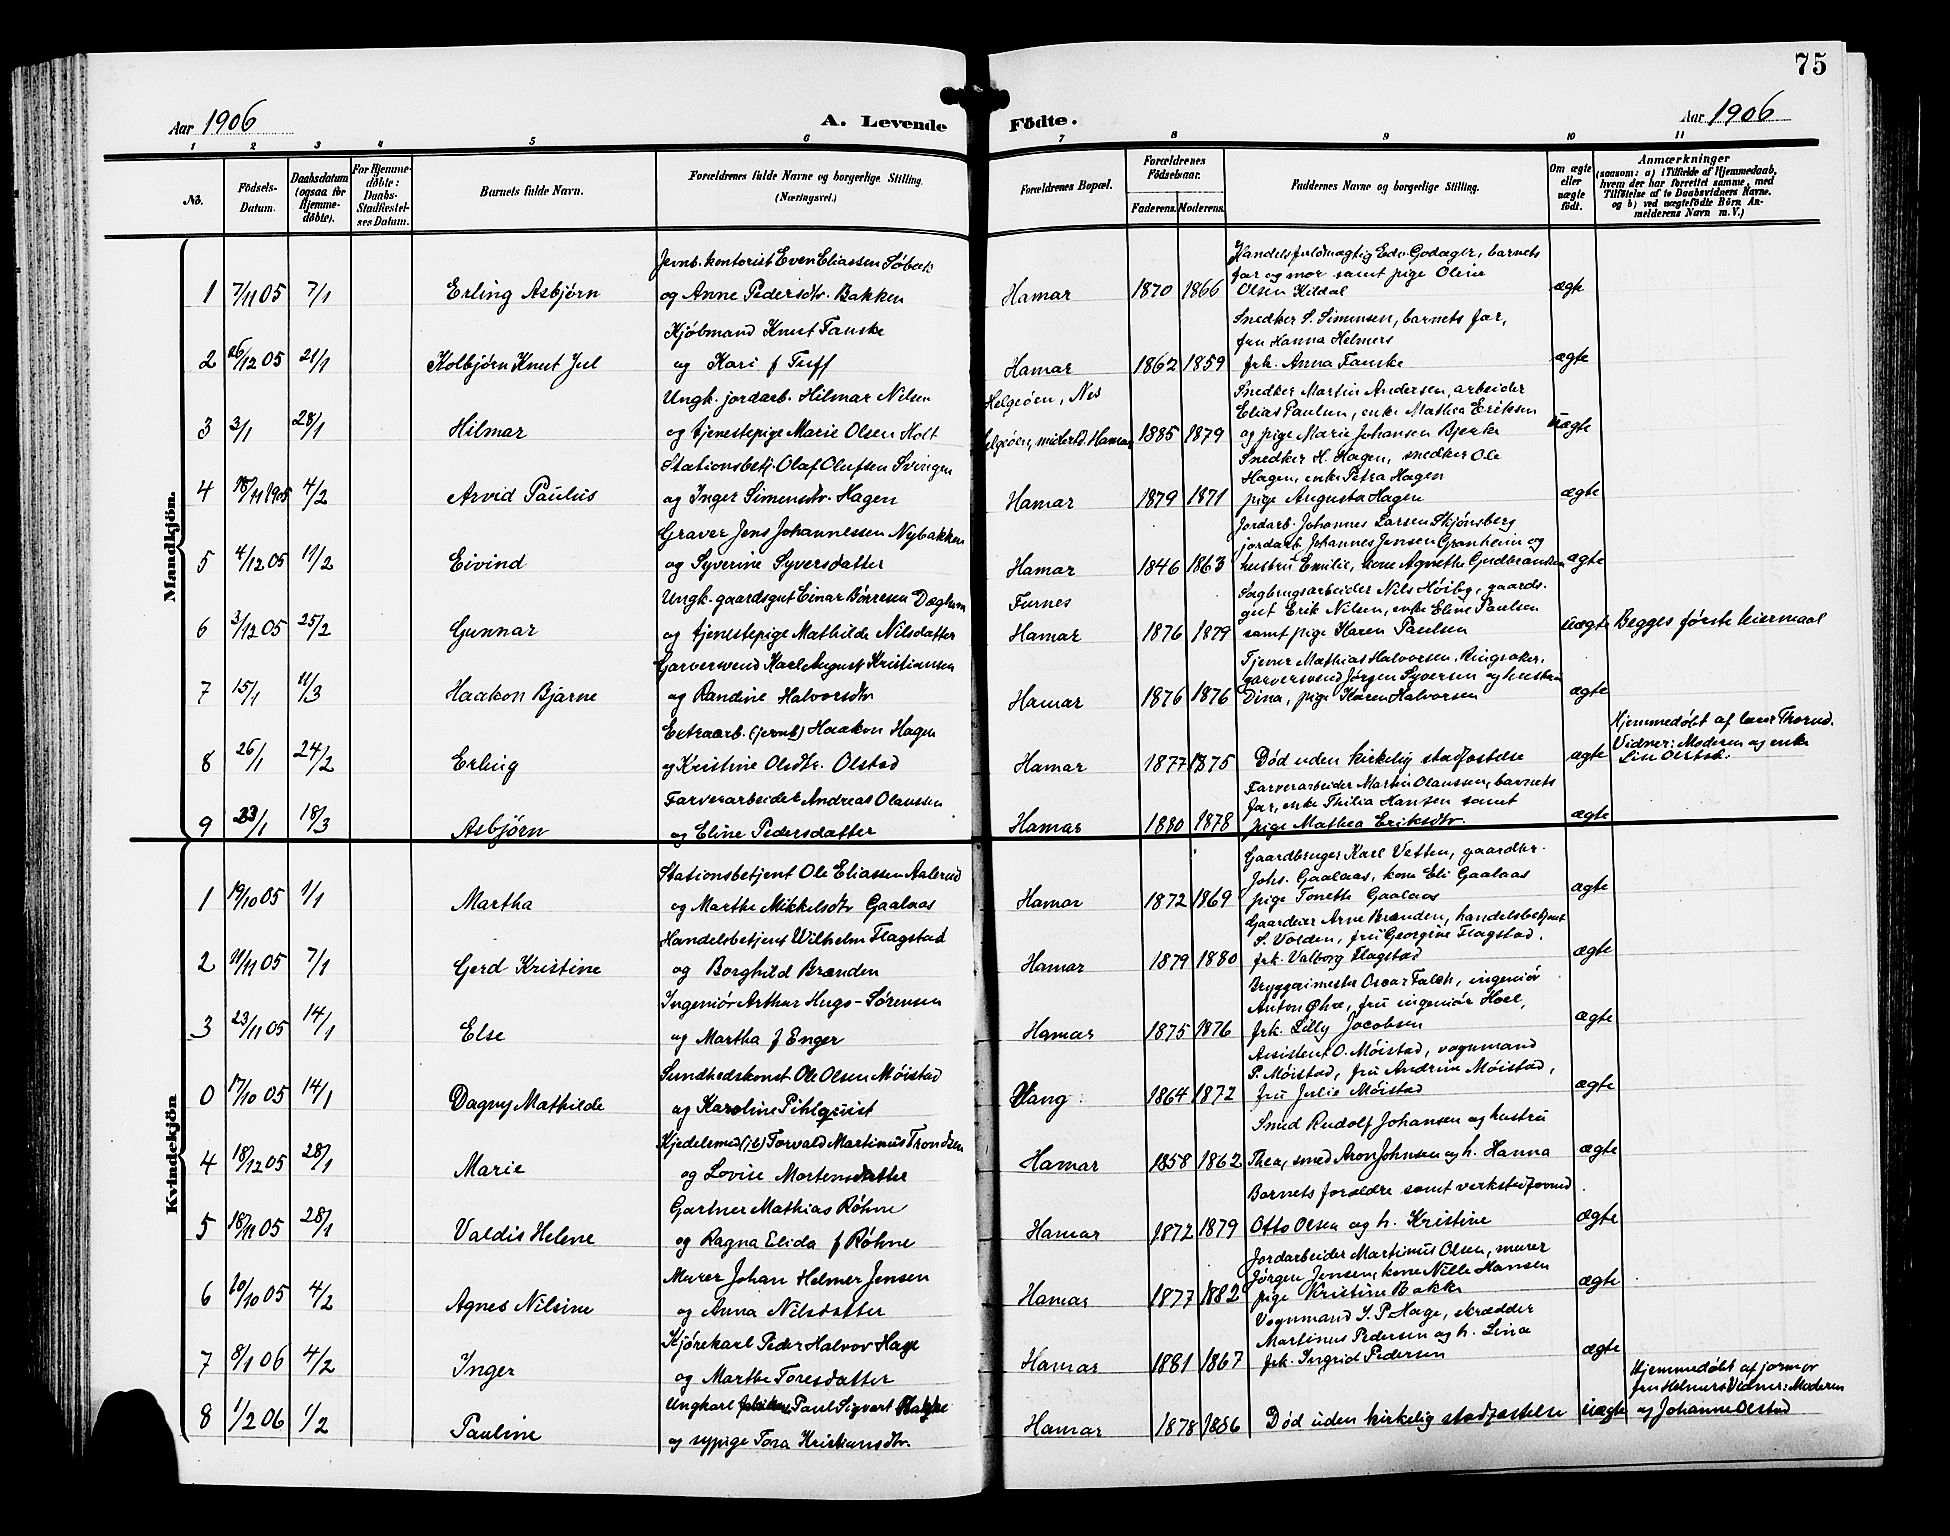 75
Aar 1906
A. Levende Födte.
Aar 1906
1 2 3 4 5 6 7 8 9 10 11
No. Födsels-Datum. Daabsdatum (ogsaa for Hjemmedöbte). For Hjemmedöbte: Daabs-Stadfæstelses Datum. Barnets fulde Navn. Forældrenes fulde Navne og borgerlige Stilling. (Næringsvei.) Forældrenes Bopæl. Forældrenes Födselsaar. Faderens. Moderens. Faddernes Navne og borgerlige Stilling. Om ægte eller uægte födt. Anmærkninger (saasom: a) i Tilfælde af Hjemmedaab, hvem der har forrettet samme, med Tilföielse af to Daabsvidners Navne, og b) ved uægtefödte Börn Anmelderens Navn m. V.)
Mandkjön.
Jernb. kontorist Even Eliassen Söbæk Handelsfuldmægtig Edv. Godager, barnets
far og mor samt pige Oline
1 7/11 05 7/1 Erling Asbjörn og Anne Pedersdtr. Bakken Hamar 1870 1866 Olsen Kildal ægte
Kjöbmand Knut Fauske Snedker S. Simensen, barnets far,
fru Hanna Helmers
2 26/12 05 21/1 Kolbjörn Knut Jul og Kari f Tuff Hamar 1862 1859 frk. Anna Fauske ægte
Ungk. jordarb. Hilmar Nilsen Helgeöen, Nes Snedker Martin Andersen, arbeider
Elias Paulsen, enke Mathea Eriksen
3 3/1 28/1 Hilmar og tjenestepige Marie Olsen Holt Helgeöen, midlertd. Hamar 1885 1879 og pige Marie Johansen Bjerke uægte
Stationsbetj. Olaf Olufsen Svingen Snedker H. Hagen, snedker Ole
Hagen, enke Petra Hagen
4 18/11 1905 4/2 Arvid Paulus og Inger Simensdtr. Hagen Hamar 1879 1871 pige Augusta Hagen ægte
Graver Jens Johannessen Nybakken Jordarb. Johannes Larsen Skjönsberg
jordarb. Johannes Jensen Granheim og
5 4/12 05 11/2 Eivind og Syverine Syversdatter Hamar 1846 1863 hustru Emilie, kone Agnethe Gudbrandsen ægte
Ungk. gaardsgut Einar Börresen Furnes Sagbrugsarbeider Nils Höiby, gaards-
gut Erik Nilsen, enke Eline Paulsen
6 3/12 05 25/2 Gunnar og tjenestepige Mathilde Nilsdatter Hamar 1876 1879 samt pige Karen Paulsen uægte Begges förste leiermaal
Garversvend Karl August Kristiansen Tjener Mathias Halvorsen, Ringsaker,
garversvend Jörgen Syversen og hustru
7 15/1 11/3 Haakon Bjarne og Randine Halvorsdtr Hamar 1876 1876 Dina, pige Karen Halvorsen ægte
Extraarb. (jernb) Haakon Hagen Hjemmedöbt af Thorud.
Vidner: Moderen og enke
8 26/1 24/2 Erling og Kristine Olsdtr. Olstad Hamar 1877 1875 Död uden kirkelig stadfæstelse ægte
Farverarbeider Andreas Olaussen Farverarbeider Martin Olaussen, barnets
far, enke Thilia Hansen samt
9 23/1 18/3 Asbjörn og Eline Pedersdatter Hamar 1880 1878 pige Mathea Eriksdtr. ægte
Kvindekjön
Stationsbetjent Ole Eliassen Aalerud Gaardbruger Karl Vetten, gaardbr.
Johs. Gaalaas, kone Eli Gaalaas
1 19/10 05 1/1 Martha og Marthe Mikkelsdtr Gaalaas Hamar 1872 1869 pige Tonette Gaalaas ægte
Handelsbetjent Wilhelm Flagstad Gaardeier Arne Brænden, handelsbetjent
S. Volden, frü Georgine Flagstad,
2 11/11 05 7/1 Gerd Kristine og Borghild Brænden Hamar 1879 1880 frk. Valborg Flagstad ægte
Ingeniör Arthur Hugo-Sörensen Bryggerimester Oscar Falch, ingeniör
Anton Öhre, frü ingeniör Hoel,
3 23/11 05 14/1 Else og Martha f Enger Hamar 1875 1876 frk. Lilly Jacobsen ægte
Sundhedskonst Ole Olsen Möistad Assistent O. Möistad, vognmand
P. Möistad, frü Andrine Möistad,
0 17/10 05 14/1 Dagny Mathilde og Karoline Pihlquist Vang 1864 1872 frü Julie Möistad ægte
Kjedelsmed (jb) Torvald Martinus Trondsen Smed Rudolf Johansen og hustru
4 18/12 05 28/1 Marie og Lovise Mortensdatter Hamar 1858 1862 Thea, smed Aron Johnsen og h. Hanna ægte
Gartner Mathias Röhne Barnets forældre samt verkstedformd
5 18/11 05 28/1 Valdis Helene og Ragna Elida f Röhne Hamar 1872 1879 Otto Olsen og h. Kristine ægte
Murer Johan Helmer Jensen Jordarbeider Martinus Olsen, murer
Jörgen Jensen, kone Nille Hansen
6 20/10 05 4/2 Agnes Nilsine og Anna Nilsdatter Hamar 1877 1882 pige Kristine Bakke ægte
Kjörekarl Peder Halvor Hage Vognmand I. P. Hage, skrædder
Martinus Pedersen og h. Lina
7 8/1 06 4/2 Inger og Marthe Toresdatter Hamar 1881 1867 frk. Ingrid Pedersen ægte
Ungkarl Paul Sigvart Hjemmedöbt af jormor
fru Helmers Vidner: Moderen
8 1/2 06 1/2 Pauline og sypige Tora Kristiansdtr. Hamar 1878 1886 Död uden kirkelig stadfæstelse uægte og Johanne Olstad